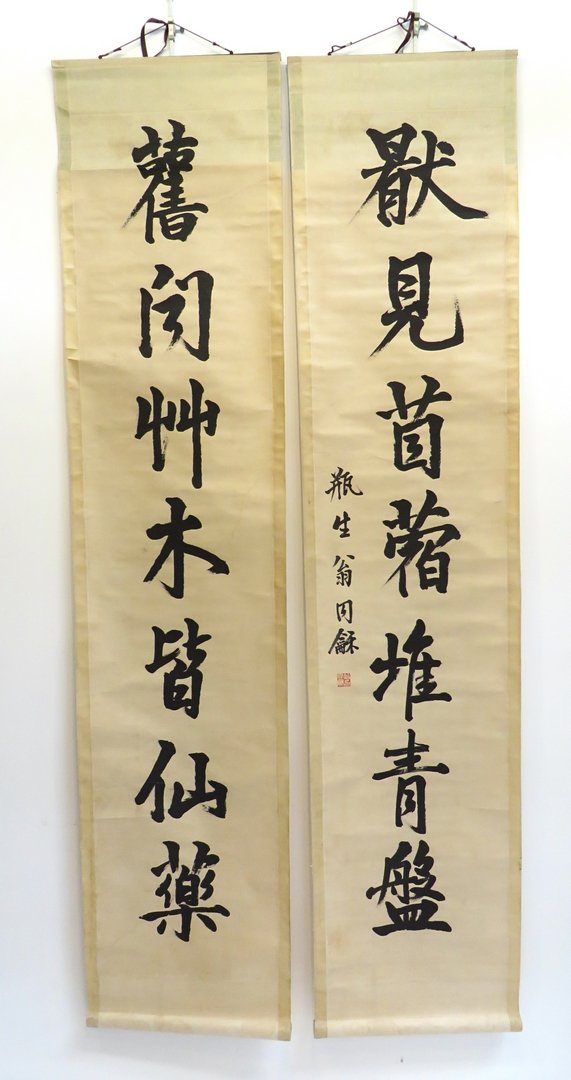 猒見苜蓿堆青盤
瓶生翁同龢
舊聞艸木皆仙藥